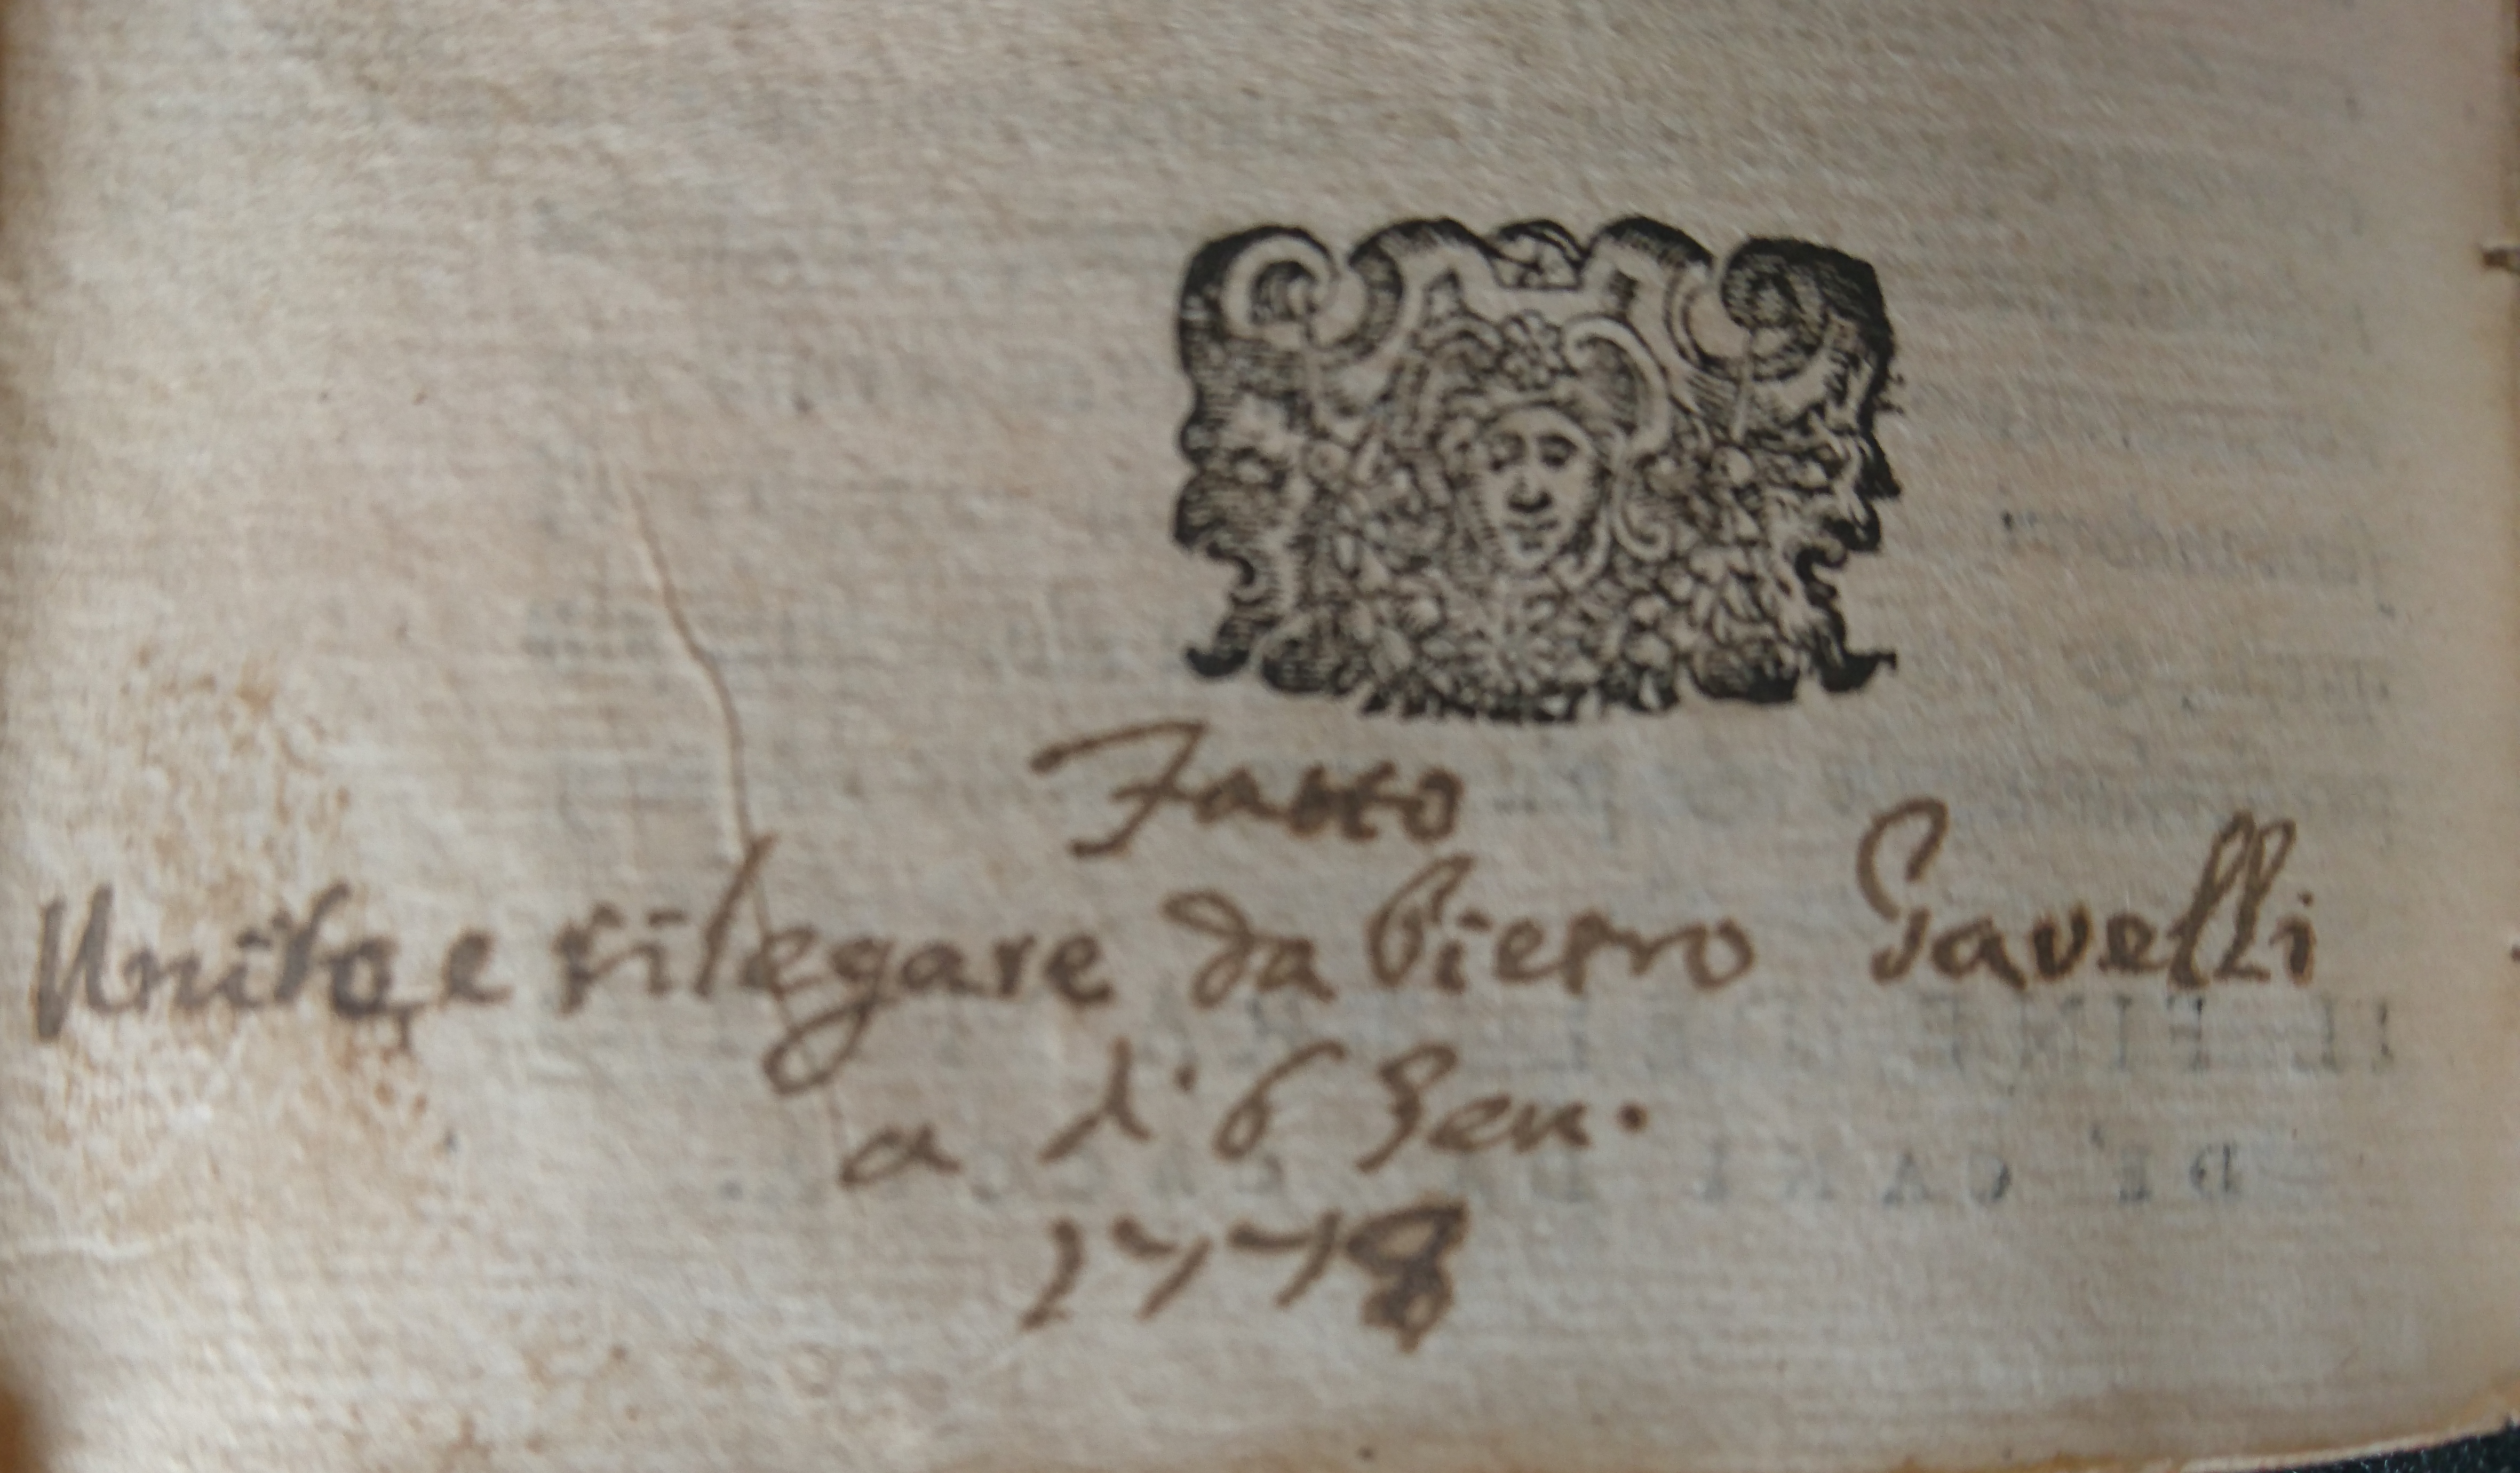 Fatto
Unire e rilegare da Pietro Gavelli
a di 6 Gen.
1778